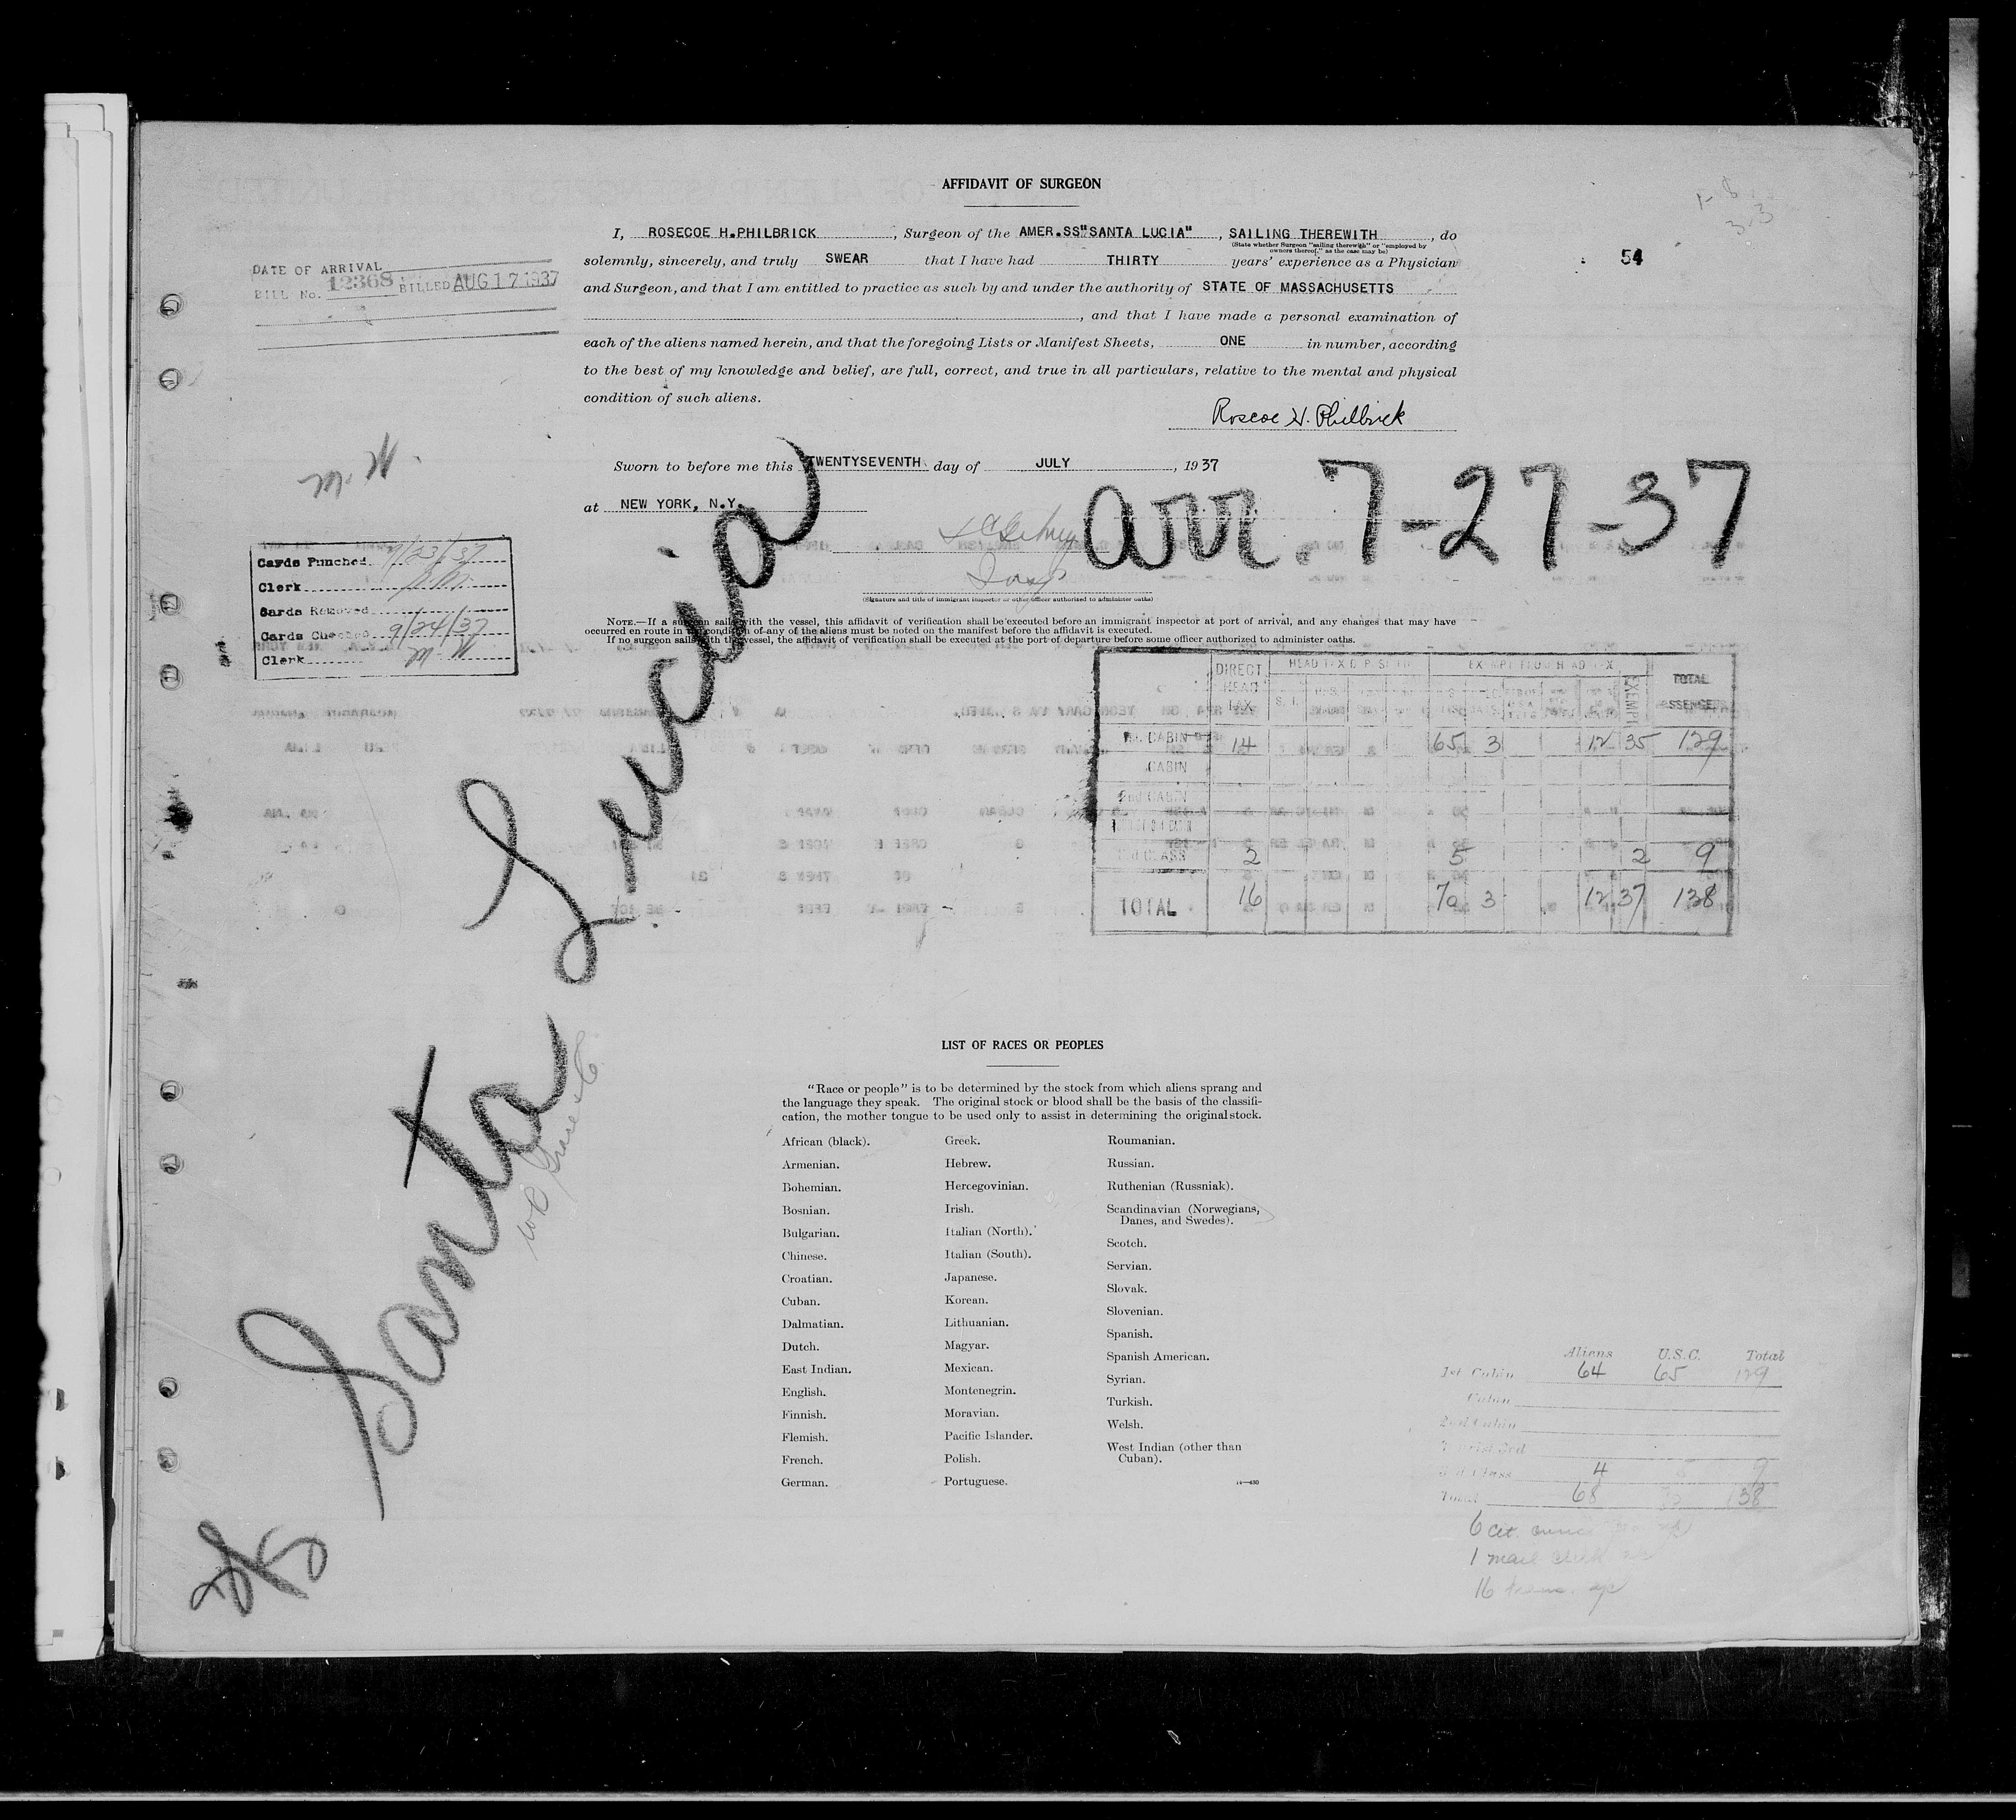 AFFIDAVIT OF SURGEON
I, ROSECOE H.PHILBRICK, Surgeon of the AMER.SS"SANTA LUCIA", SAILING THEREWITH, do
(State whether Surgeon "sailing therewith" or "employed by owners thereof," as the case may be)
solemnly, sincerely, and truly SWEAR that I have had THIRTY years' experience as a Physician
and Surgeon, and that I am entitled to practice as such by and under the authority of STATE OF MASSACHUSETTS
, and that I have made a personal examination of
each of the aliens named herein, and that the foregoing Lists or Manifest Sheets, ONE in number, according
to the best of my knowledge and belief, are full, correct, and true in all particulars, relative to the mental and physical
condition of such aliens.
Roscoe H. Philbrick
54
DATE OF ARRIVAL
BILL No. 12368 BILLED AUG 17 1937
Sworn to before me this TWENTYSEVENTH day of JULY, 1937
at NEW YORK, N.Y.
arr. 7-27-37
(Signature and title of immigrant inspector or other officer authorized to administer oaths)
M.W.
Cards Punched 9/23/37
Clerk
Cards Removed
Cards Checked 9/24/37
Clerk M.W.
NOTE.—If a surgeon sails with the vessel, this affidavit of verification shall be executed before an immigrant inspector at port of arrival, and any changes that may have
occurred en route in the condition of any of the aliens must be noted on the manifest before the affidavit is executed.
If no surgeon sails with the vessel, the affidavit of verification shall be executed at the port of departure before some officer authorized to administer oaths.
DIRECT HEAD TAX EXEMPT FROM HEAD TAX EXEMPT TOTAL
CABIN 14 65 3 12 35 129
CABIN
2nd CABIN
CLASS 2 5 2 9
TOTAL 16 70 3 12 37 138
Santa Lucia
LIST OF RACES OR PEOPLES
"Race or people" is to be determined by the stock from which aliens sprang and
the language they speak. The original stock or blood shall be the basis of the classifi-
cation, the mother tongue to be used only to assist in determining the original stock.
African (black).
Armenian.
Bohemian.
Bosnian.
Bulgarian.
Chinese.
Croatian.
Cuban.
Dalmatian.
Dutch.
East Indian.
English.
Finnish.
Flemish.
French.
German.
Greek.
Hebrew.
Hercegovinian.
Irish.
Italian (North).
Italian (South).
Japanese.
Korean.
Lithuanian.
Magyar.
Mexican.
Montenegrin.
Moravian.
Pacific Islander.
Polish.
Portuguese.
Roumanian.
Russian.
Ruthenian (Russniak).
Scandinavian (Norwegians,
Danes, and Swedes).
Scotch.
Servian.
Slovak.
Slovenian.
Spanish.
Spanish American.
Syrian.
Turkish.
Welsh.
West Indian (other than
Cuban).
Aliens U.S.C. Total
1st Cabin 64 65 129
Cabin
2nd Cabin
3rd Class 4 5 9
Total 68 70 138
1 mail clerk